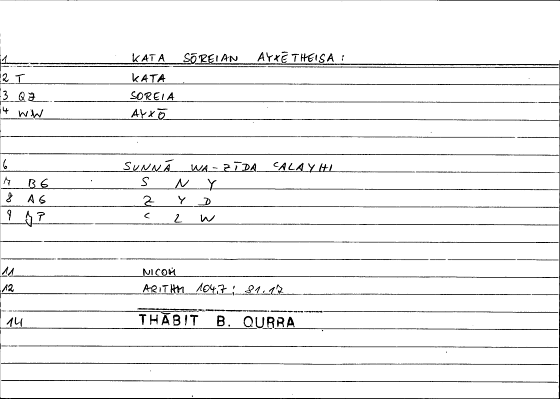 1 KATA SŌREIAN AYXĒTHEISA :
2 T KATA
3 QZ SOREIA
4 WW AYXŌ
6 SUNNĀ WA-ZĪDA ʿALAYHI
7 BG S N Y
8 AG Z Y D
9 P C L W
11 NICOM
12 ARITHM 104.7; 81.17
14 THĀBIT B. QURRA